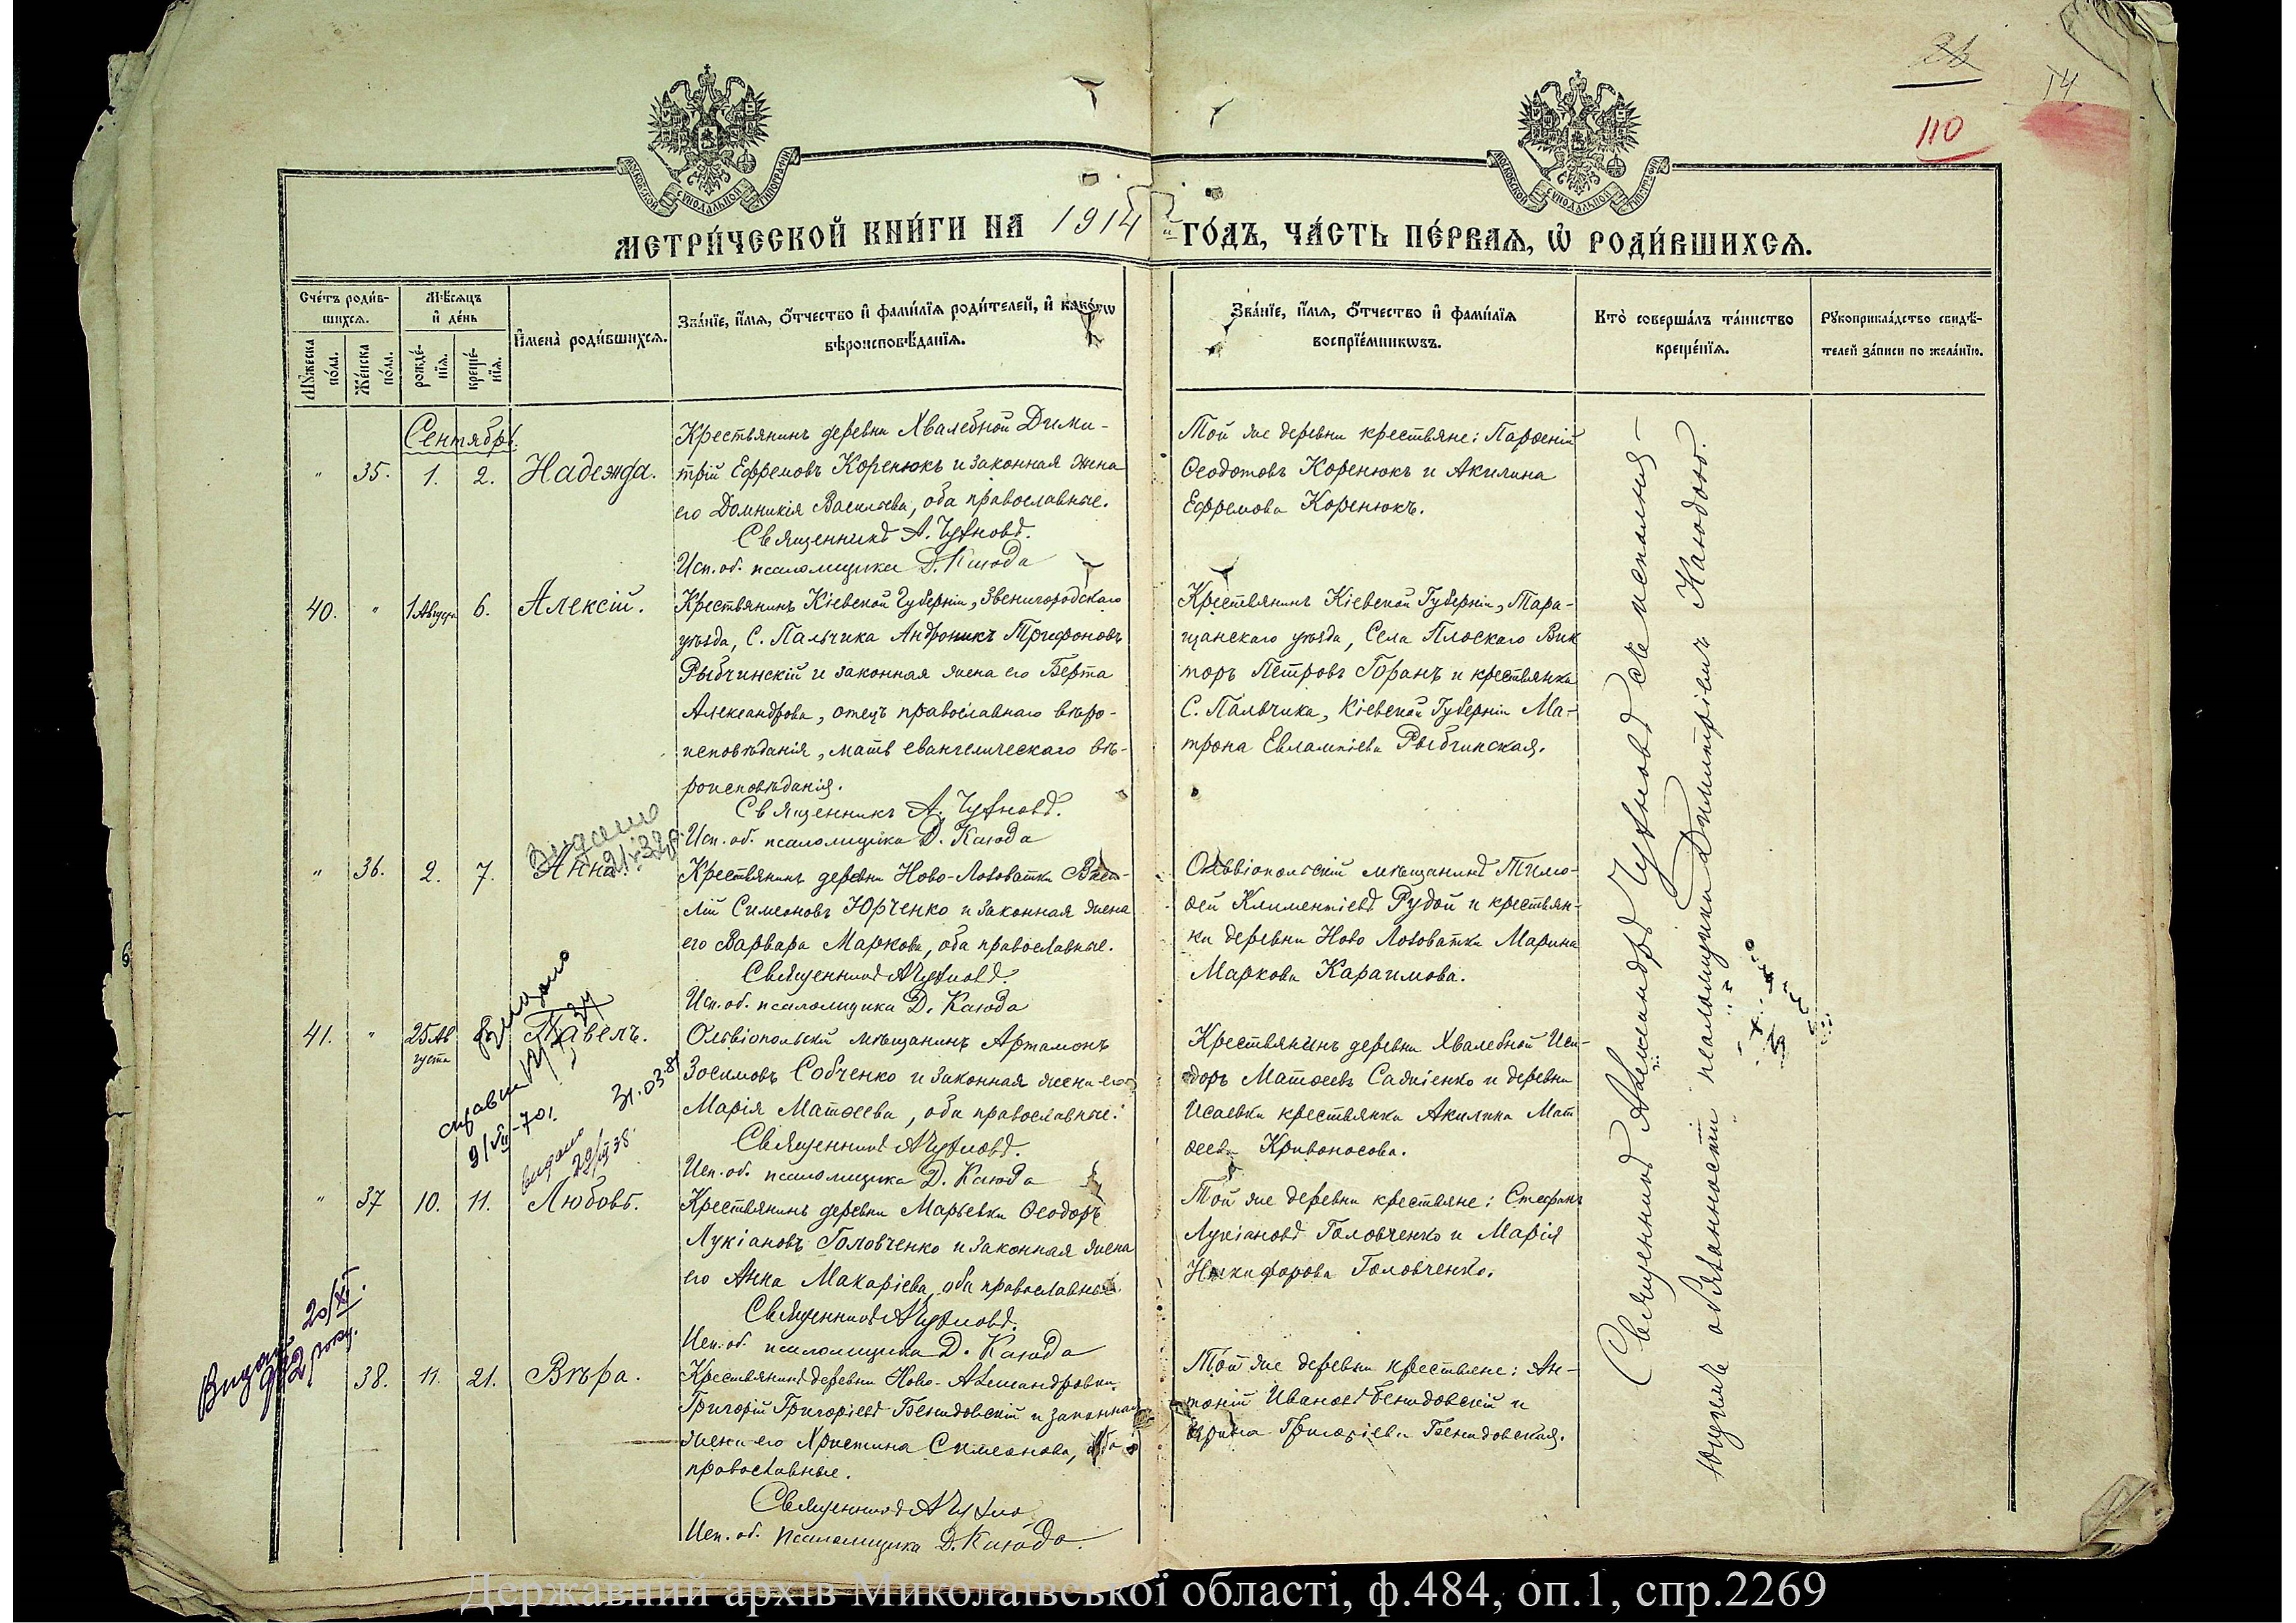 26
14
110
МОСКОВСКОЙ СѴНОДАЛЬНОЙ ТИПОГРАФІИ
МОСКОВСКОЙ СѴНОДАЛЬНОЙ ТИПОГРАФІИ
МЕТРИ́ЧЕСКОЙ КНИ́ГИ НА 1914 й ГО́ДЪ, ЧА́СТЬ ПЕ́РВАЯ, Ѡ҆ РОДИ́ВШИХСЯ.
Сче́тъ роди́в-
шихся.
Мѣ́сяцъ
и҆ де́нь
И҆мена̀ роди́вшихся.
Зва́нїе, и҆́мя, ѻ҆́тчество и҆ фами́лїя роди́телей, и҆ како́гѡ
вѣроисповѣ́данїя.
Зва́нїе, и҆́мя, ѻ҆́тчество и҆ фами́лїя
воспрїе́мникѡвъ.
Кто̀ соверша́лъ та́инство
креще́нїя.
Рꙋкоприкла́дство свидѣ́-
телей за́писи по жела́нїю.
Мꙋ́жеска
по́ла.
Же́нска
по́ла.
рожде́-
нїя.
креще́-
нїя.
Сентябрь.
" 35. 1. 2. Надежда.
Крестьянинъ деревни Хвалебной Дими-
трій Ефремовъ Коренюкъ и законная жена
его Домникія Васильева, оба православные.
Священникъ А. Чухновъ.
Исп. об. псаломщика Д. Каюда
Той же деревни крестьяне: Парѳеній
Ѳеодотовъ Коренюкъ и Акилина
Ефремова Коренюкъ.
40. " 1 Августа 6. Алексій.
Крестьянинъ Кіевской Губерніи, Звенигородскаго
уѣзда, С. Пальчика Андроникъ Трифоновъ
Рыбчинскій и законная жена его Берта
Александрова, отецъ православнаго вѣро-
исповѣданія, мать евангелическаго вѣ-
роисповѣданія.
Священникъ А. Чухновъ.
Исп. об. псаломщика Д. Каюда
Крестьянинъ Кіевской Губерніи, Тара-
щанскаго уѣзда, Села Плоскаго Вик
торъ Петровъ Горанъ и крестьянка
С. Пальчика, Кіевской Губерніи Ма-
трона Евлампіева Рыбчинская.
Видано
" 36. 2. 7. Анна.
Крестьянинъ деревни Ново-Лозоватки Васи-
лій Симеоновъ Юрченко и законная жена
его Варвара Маркова, оба православные.
Священникъ А Чухновъ.
Исп. об. псаломщика Д. Каюда
Ольвіопольскій мѣщанинъ Тимо-
ѳей Климентіевъ Рудой и крестьян-
ка деревни Ново Лозоватки Марина
Маркова Караимова.
Видано
41. " 25 Ав
густа
Павелъ.
справка
9/VII-70г.
31.03.81
Ольвіопольскій мѣщанинъ Артамонъ
Зосимовъ Собченко и законная жена его
Марія Матѳеева, оба православные.
Священникъ А Чухновъ.
Исп. об. псаломщика Д. Каюда
Крестьянинъ деревни Хвалебной Иси-
доръ Матѳеевъ Сапіенко и деревни
Исаевки крестьянка Акилина Мат
ѳеева Кривоносова.
видано
29/VI 38.
" 37 10. 11. Любовь.
Крестьянинъ деревни Марьевки Ѳеодоръ
Лукіановъ Головченко и законная жена
его Анна Макаріева, оба православные.
Священникъ А Чухновъ.
Исп. об. псаломщика Д. Каюда
Той же деревни крестьяне: Стефанъ
Лукіановъ Головченко и Марія
Никифорова Головченко.
Видано 20/XI.
942 року.
38. 11. 21. Вѣра.
Крестьянинъ деревни Ново-Александровки
Григорій Григоріевъ Бенидовскій и законная
жена его Христина Симеонова, оба
православные.
Священникъ А Чухно
Исп. об. псаломщика Д. Каюда.
Той же деревни крестьяне: Ан-
тоній Ивановъ Бенидовскій и
Ирина Григоріева Бенидовская.
Священникъ Александръ Чухновъ съ исполня-
ющимъ обязанности псаломщика Димитріемъ Каюдою.
Державний архів Миколаївської області, ф.484, оп.1, спр.2269